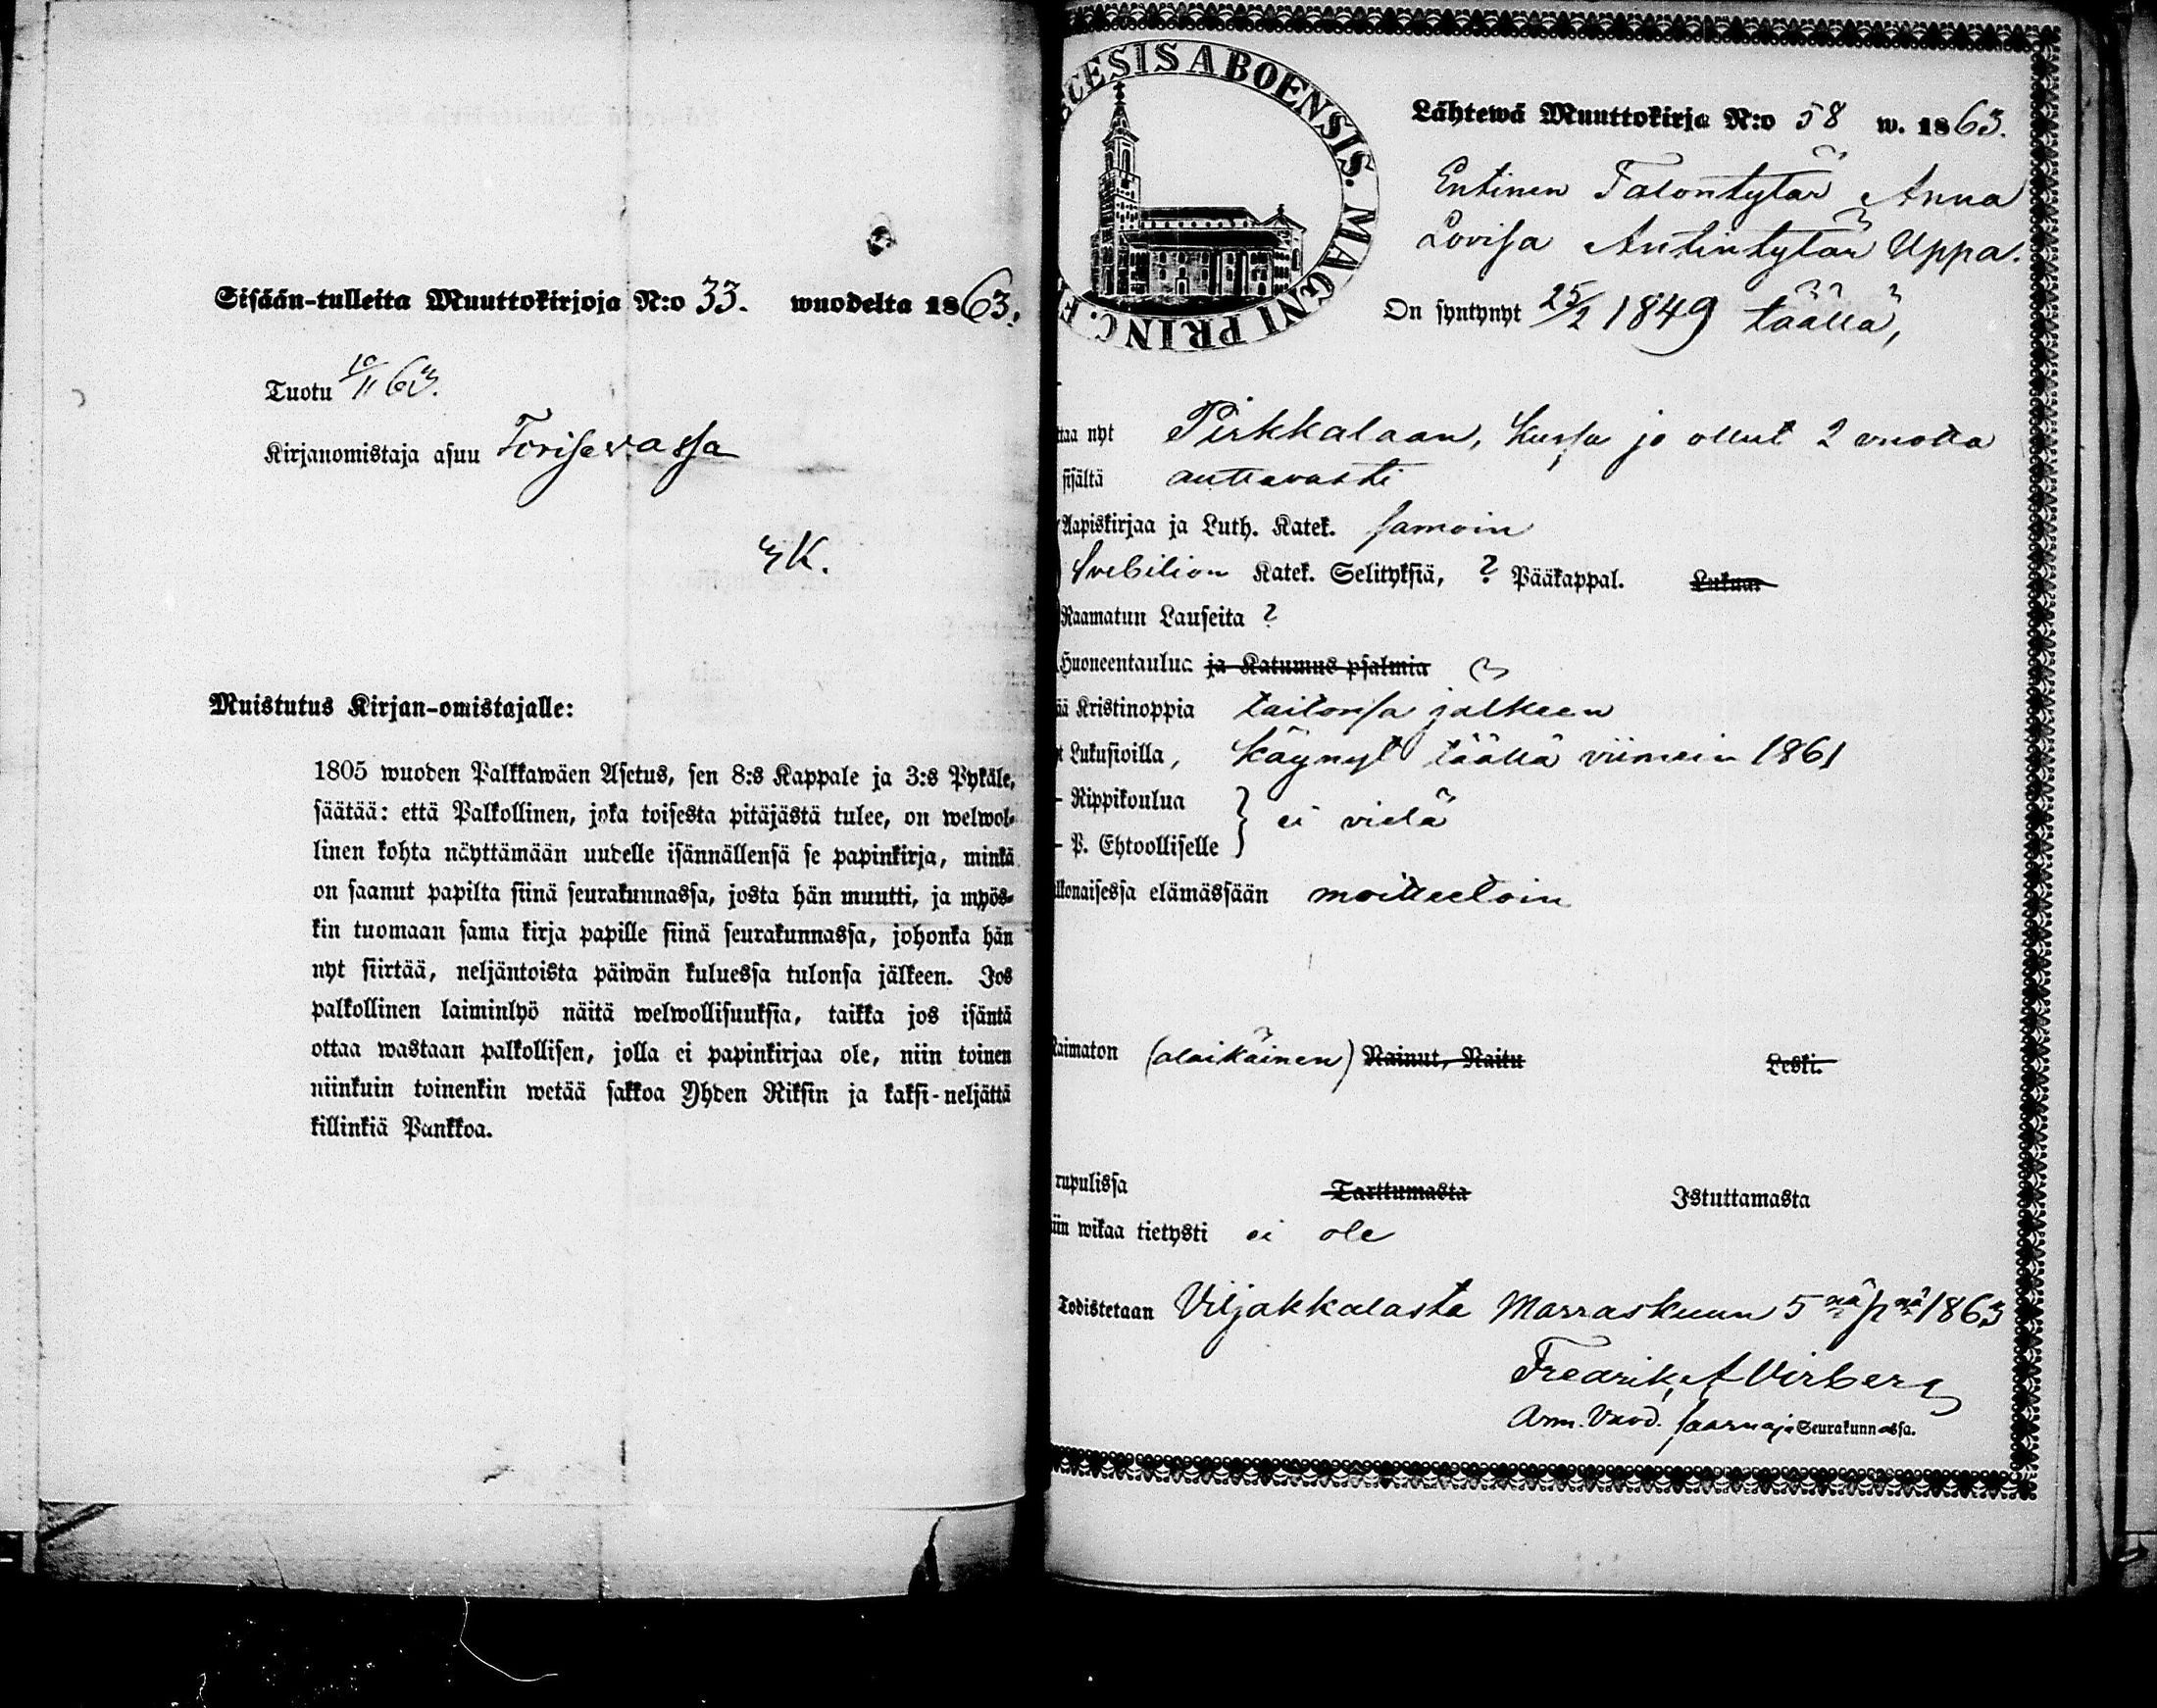 Sisään-tulleita Muuttokirjoja N:o 33. wuodelta 1863.
Tuotu 10/11 63.
Kirjanomistaja asuu Torisevassa
K.
Muistutus Kirjan-omistajalle:
1805 wuoden Palkkawäen Asetus, sen 8:s Kappale ja 3:s Pykäle,
säätää: että Palkollinen, joka toisesta pitäjästä tulee, on welwol-
linen kohta näyttämään uudelle isännällensä se papinkirja, minkä
on saanut papilta siinä seurakunnassa, josta hän muutti, ja myös-
kin tuomaan sama kirja papille siinä seurakunnassa, johonka hän
nyt siirtää, neljäntoista päiwän kuluessa tulonsa jälkeen. Jos
palkollinen laiminlyö näitä welwollisuuksia, taikka jos isäntä
ottaa wastaan palkollisen, jolla ei papinkirjaa ole, niin toinen
niinkuin toinenkin wetää sakkoa Yhden Riksin ja kaksi-neljättä
killinkiä Pankkoa.
CESIS ABOENSIS. MAGNI PRINC. F
Lähtewä Muuttokirja N:o 58 w. 1863.
Entinen Talontytär Anna
Lovisa Antintytär Uppa.
On syntynyt 25/2 1849 täällä,
taa nyt Pirkkalaan, kussa jo ollut 2 vuotta
sisältä auttavasti
Aapiskirjaa ja Luth. Katek. samoin
Svebilion Katek. Selityksiä, ? Pääkappal. Lukua.
Raamatun Lauseita ?
Huoneentaulua ja Katumus psalmia
ää Kristinoppia taitonsa jälkeen
t Lukusioilla, Käynyt täällä viimein 1861
- Rippikoulua
} ei vielä
- P. Ehtoolliselle
lkonaisessa elämässään moitteetoin
Naimaton (alaikäinen) Nainut, Naitu Leski.
rupulissa Tarttumasta Istuttamasta
iin wikaa tietysti ei ole
Todistetaan Viljakkalasta Marraskuun 5 nä p nä 1863
Fredrik A Virberg
Arm. Vuod. saarnaja Seurakunnassa.